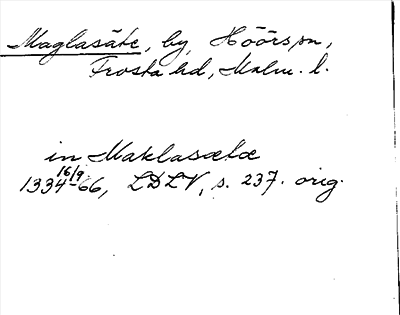 Maglasäte, by, Höörs sn,
Frosta hd, Malm. l.
in Maklasætæ
1334 16/9 -66, LDLV, s. 237. orig.